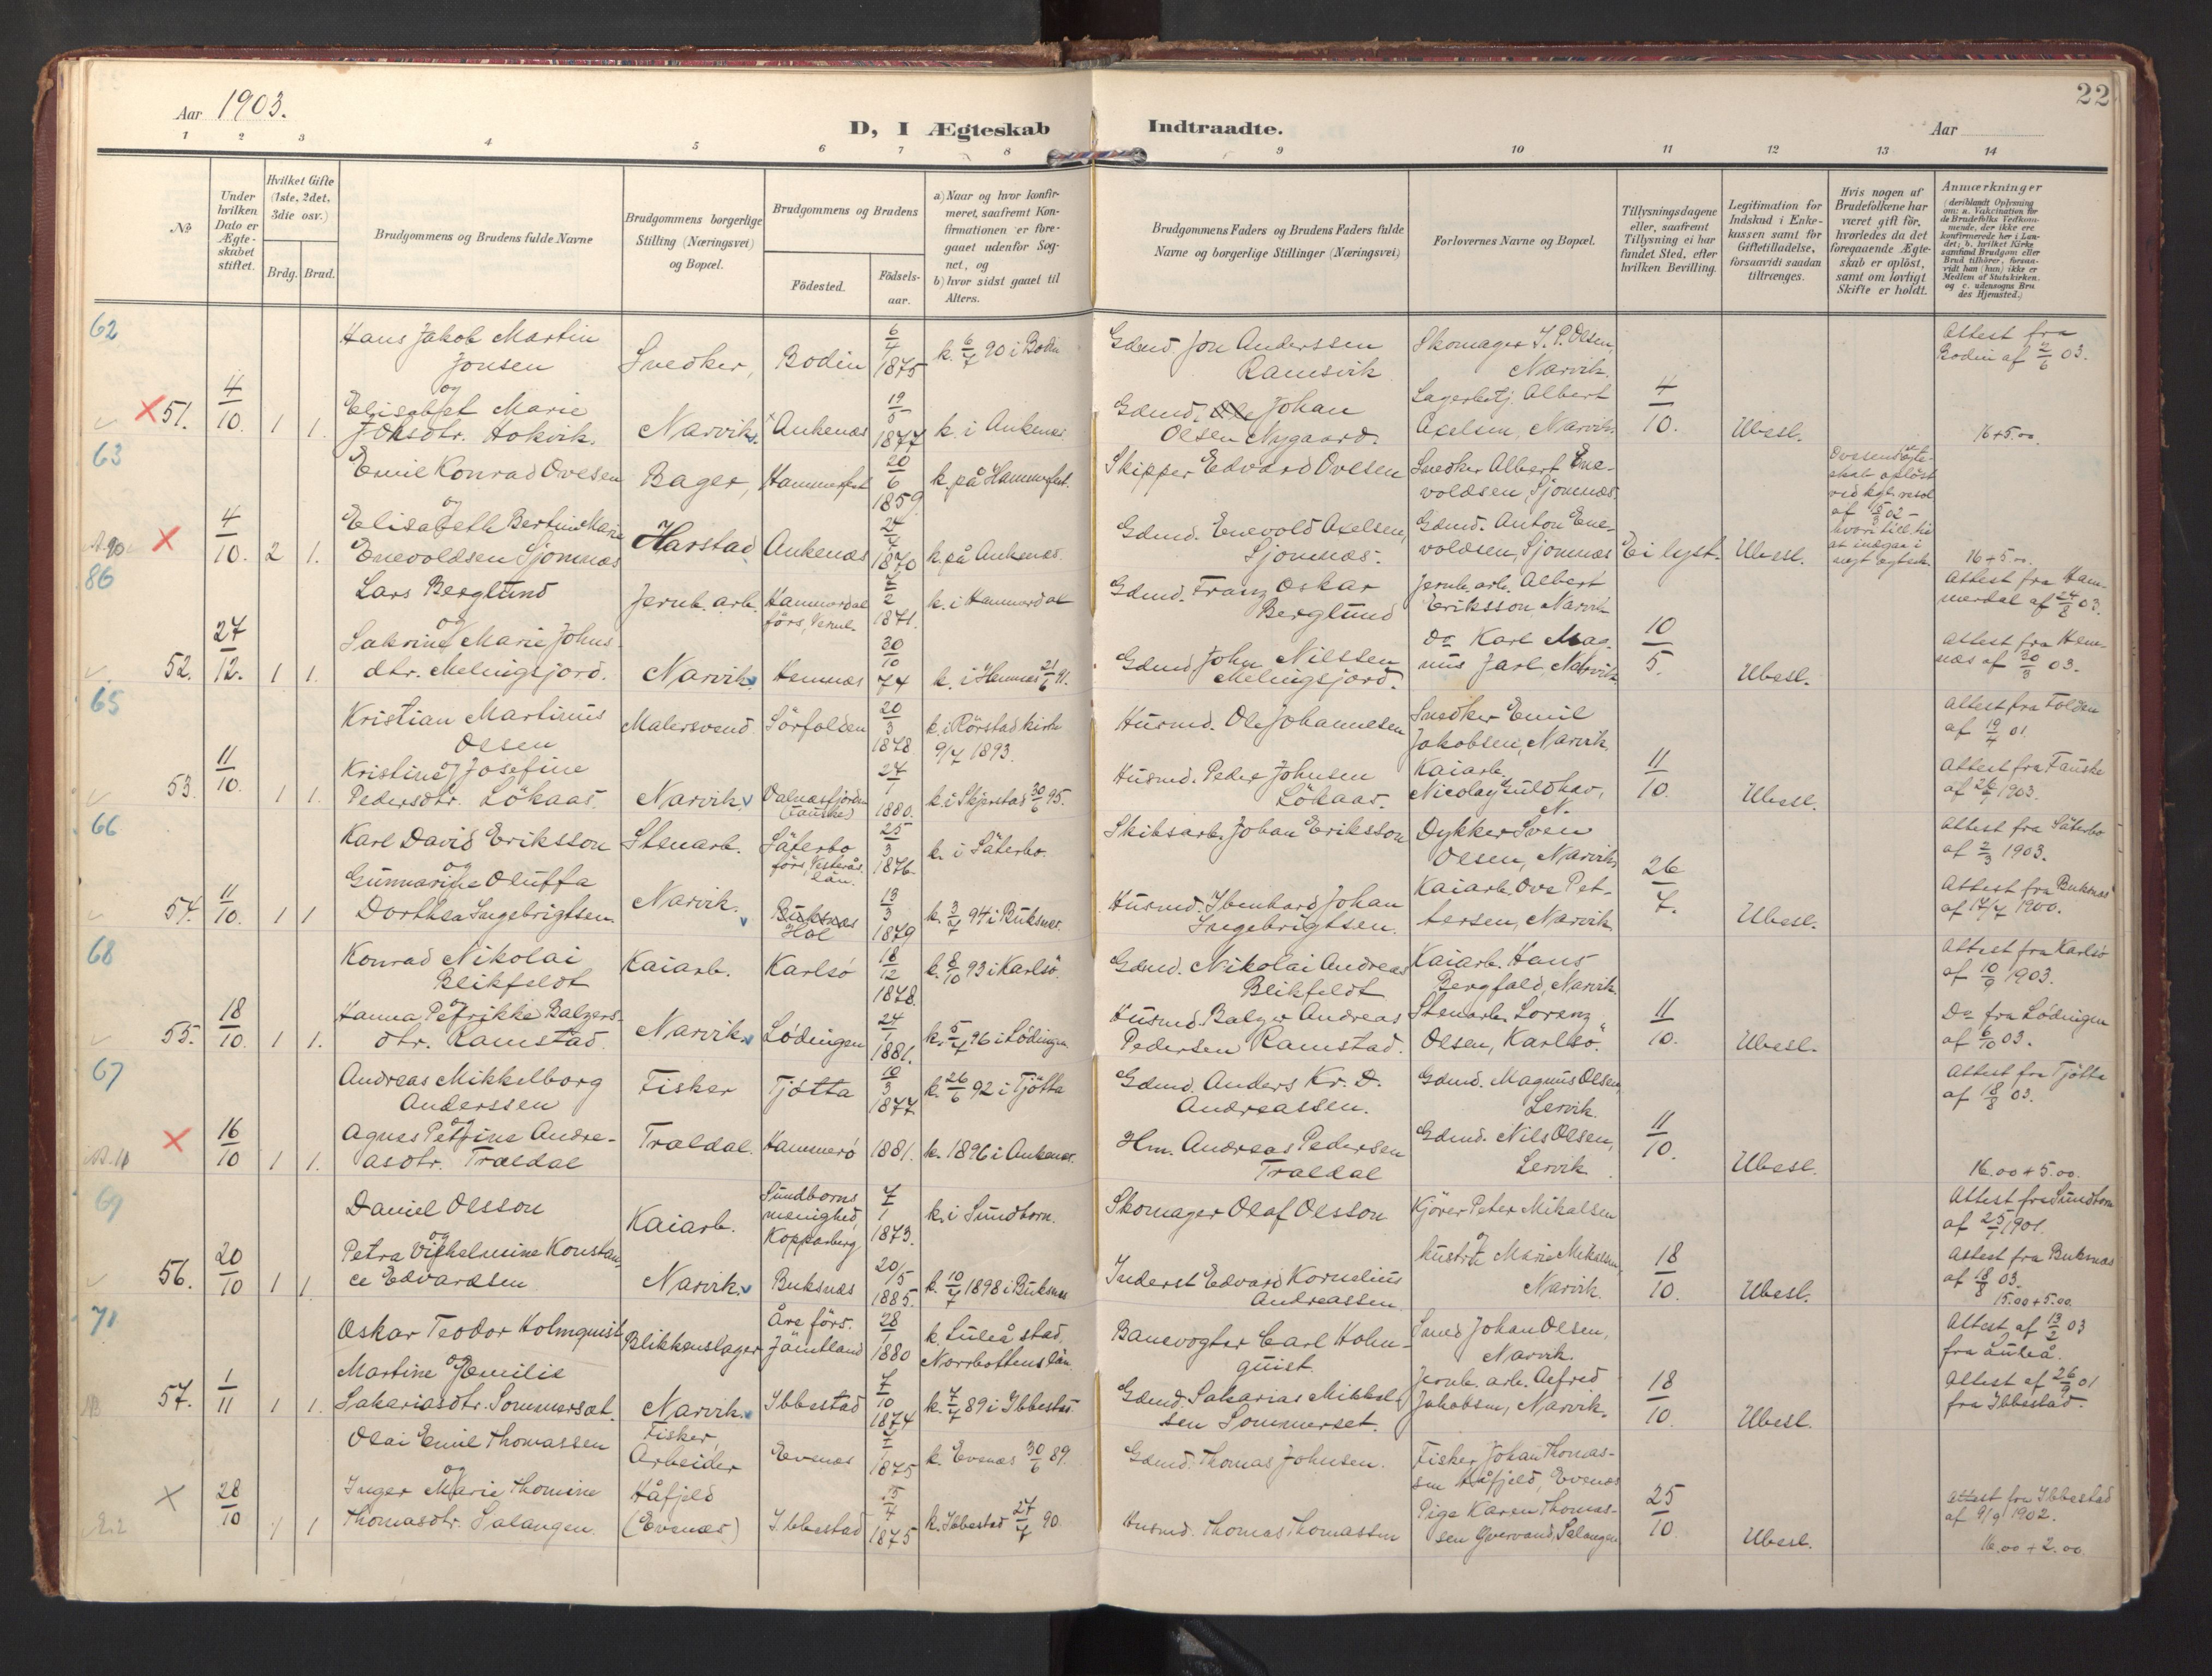 Aar 1903.
D, I Ægteskab Indtraadte.
Aar
22
1 2 3 4 5 6 7 8 9 10 11 12 13 14
No
Under hvilken Dato er Ægteskabet stiftet.
Hvilket Gifte (1ste, 2det, 3die osv.)
Brdg. Brud.
Brudgommens og Brudens fulde Navne
Brudgommens borgerlige Stilling (Næringsvei) og Bopæl.
Brudgommens og Brudens
Födested.
Födselsaar.
a) Naar og hvor konfirmeret, saafremt Konfirmationen er foregaaet udenfor Sognet, og
b) hvor sidst gaaet til Alters.
Brudgommens Faders og Brudens Faders fulde Navne og borgerlige Stillinger (Næringsvei)
Forlovernes Navne og Bopæl.
Tillysningsdagene eller, saafremt Tillysning ei har fundet Sted, efter hvilken Bevilling.
Legitimation for Indskud i Enkekassen samt for Giftetilladelse, forsaavidt saadan tiltrænges.
Hvis nogen af Brudefolkene har været gift för, hvorledes da det foregaaende Ægteskab er oplöst, samt om lovligt Skifte er holdt.
Anmærkninger (deriblandt Oplysning om: a. Vakcination for de Brudefolks Vedkommende, der ikke ere konfirmerede her i Landet; b. hvilket Kirkesamfund Brudgom eller Brud tilhörer, forsaavidt han (hun) ikke er Medlem af Statskirken. og c. udensogns Brudes Hjemsted.)
62
Hans Jakob Martin Jonsen Snedker, Bodin 6/4 1875 k. 6/7 90 i Bodin Gdmd. Jon Anderssen Ramsvik Skomager J. P. Olsen, Narvik. Attest fra Bodin af 2/6 03.
51. 4/10. 1 1. og Elisabet Marie Johsdtr. Hokvik. Narvik. Ankenæs 19/5 1877 k. i Ankenæs Gdmd. Ole Johan Olsen Nygaard. Lagerbetj. Albert Axelsen, Narvik. 4/10. Ubesl. 16+5.00.
63
Emil Konrad Ovesen Bager, Hammerfest 20/6 1859. k. på Hammerfest. Skipper Edvard Ovesen Snedker Albert Enevoldsen, Sjomnæs.
4/10. 2 1. og Elisabeth Bertine Marie Enevoldsen Sjomnæs Harstad Ankenæs 24/4 1870 k. på Ankenæs. Gdmd. Enevold Axelsen, Sjomnæs. Gdmd. Anton Enevoldsen, Sjomnæs Ei lyst. Ubesl. 16+5.00.
86
Lars Berglund Jernb. arb. Hammerdal förs, 2 1871. k. i Hammerdal Gdmd. Franz Oskar Berglund Jernb. arb. Albert Eriksson, Narvik Attest fra Hammerdal af 24/2 03.
52. 27/12. 1 1. og Sakrine Marie Johnsdtr. Melingsfjord. Narvik. Hemnæs 30/10 74 k. i Hemnæs 21/6 91. Gdmd. John Nilssen Melingsfjord. Do Karl Magnus Jarl, Narvik. 10/5. Ubesl. Attest fra Hemnæs af 30/3 03.
65
Kristian Martinus Olsen Malersvend Sörfolden 20/3 1878. k. i Rörstad kirke 9/7 1893. Husmd. Ole Johannesen Snedker Emil Jakobsen, Narvik. Attest fra Folden af 19/4 01
53. 11/10. 1 1. og Kristine Josefine Pedersdtr. Lökaas. Narvik. Valnæsfjorden (Fauske) 27/1 1880. k. i Skjerstad 30/6 95. Husmd. Peder Johnsen Lökaas. Kaiarb. Nicolay Guldhav, N. 11/10. Ubesl. Attest fra Fauske 1903.
66
Karl David Eriksson Stenarb. Säterbo förs, Vesterås län. 25/3 1876 k. i Säterbo. Skibsarb. Johan Eriksson Dykker Sven Olsen, Narvik Attest fra Säterbo af 2/3 1903.
54. 11/10. 1 1 og Gunnarine Oluffa Dorthea Ingebrigtsen. Narvik. Buksnæs Hol 13/3 1879 k. 3/7 94 i Buksnæs. Husmd. Ibenhard Johan Ingebrigtsen. Kaiarb. Ove Pettersen, Narvik. 26/7. Ubesl. Attest fra Buksnæs af 17/7 1900.
68
Konrad Nikolai Blikfeldt Kaiarb. Karlsö 18/12 1878. k. 8/10 93 i Karlsö. Gdmd. Nikolai Andreas Blikfeldt Kaiarb. Hans Bergfald, Narvik. Attest fra Karlsö af 10/9 1903.
55. 18/10. 1 1. og Hanna Petrikke Balzersdtr. Ramstad. Narvik. Lödingen 24/1 1881. k. 5/7 96 i Lödingen Husmd. Balzer Andreas Pedersen Ramstad. Stenarb. Lorenz Olsen, Karlsö. 11/10. Ubesl. Do fra Lödingen af 6/10 03.
67
Andreas Mikkelborg Anderssen Fisker Tjötta 10/3 1877. k. 26/6 92 i Tjötta Gdmd. Anders Kr. D. Andreassen. Gdmd. Magnus Olsen, Lervik. Attest fra Tjötta af 18/8 03.
16/10 1 1. og Agnes Petrine Andreasdtr. Traldal Traldal. Hammerö 1881. k. 1896 i Ankenæs. Hm. Andreas Pedersen Traldal Gdmd. Nils Olsen, Lervik 11/10. Ubesl. 16.00+5.00.
69
Daniel Olsson Kaiarb. Sundborns menighed, Kopparberg 7/1 1873. k. i Sundborn. Skomager Olaf Olsson Kjörer Peter Mikalsen Attest fra Sundborn af 25/7 1901.
56. 20/10 1 1. og Petra Vilhelmine Konstance Edvardsen Narvik. Buksnæs 20/5 1885. k. 10/7 1898 i Buksnæs Inderst Edvard Kornelius Andreassen. og hustru Marie Mikalsen, Narvik. 18/10. Ubesl. Attest fra Buksnæs af 18/8 03. 15.00+5.00.
71
Oskar Teodor Holmquist Blikkenslager Åre förs. Jämtland 28/1 1880 k. Luleå stad, Norrbottens län. Banevogter Carl Holmquist. Smed Johan Olsen, Narvik. Attest af 13/2 03 fra Luleå.
57. 1/11 1 1. og Martine Emilie Sakariasdtr. Sommersæt. Narvik. Ibbestad 7/10 1874 k. 7/7 89 i Ibbestad. Gdmd. Sakarias Mikkelsen Sommerset. Jernb. arb. Alfred Jakobsen, Narvik. 18/10. Ubesl. Attest af 26/9 01 fra Ibbestad.
Olai Emil Thomassen Fisker, Arbeider Evenæs 1875 k. Evenæs 30/6 89. Gdmd. Thomas Johnsen. Fisker Johan Thomassen Håfjeld, Evenæs
28/10 1 1 og Inger Marie Thomine Thomasdtr. Salangen. Håfjeld (Evenæs) Ibbestad 1875 k. Ibbestad 27/7 90. Husmd. Thomas Thomassen Pige Karen Thomassen, Salangen 25/10. Ubesl. Attest fra Ibbestad af 9/9 1902. 16.00+2.00.